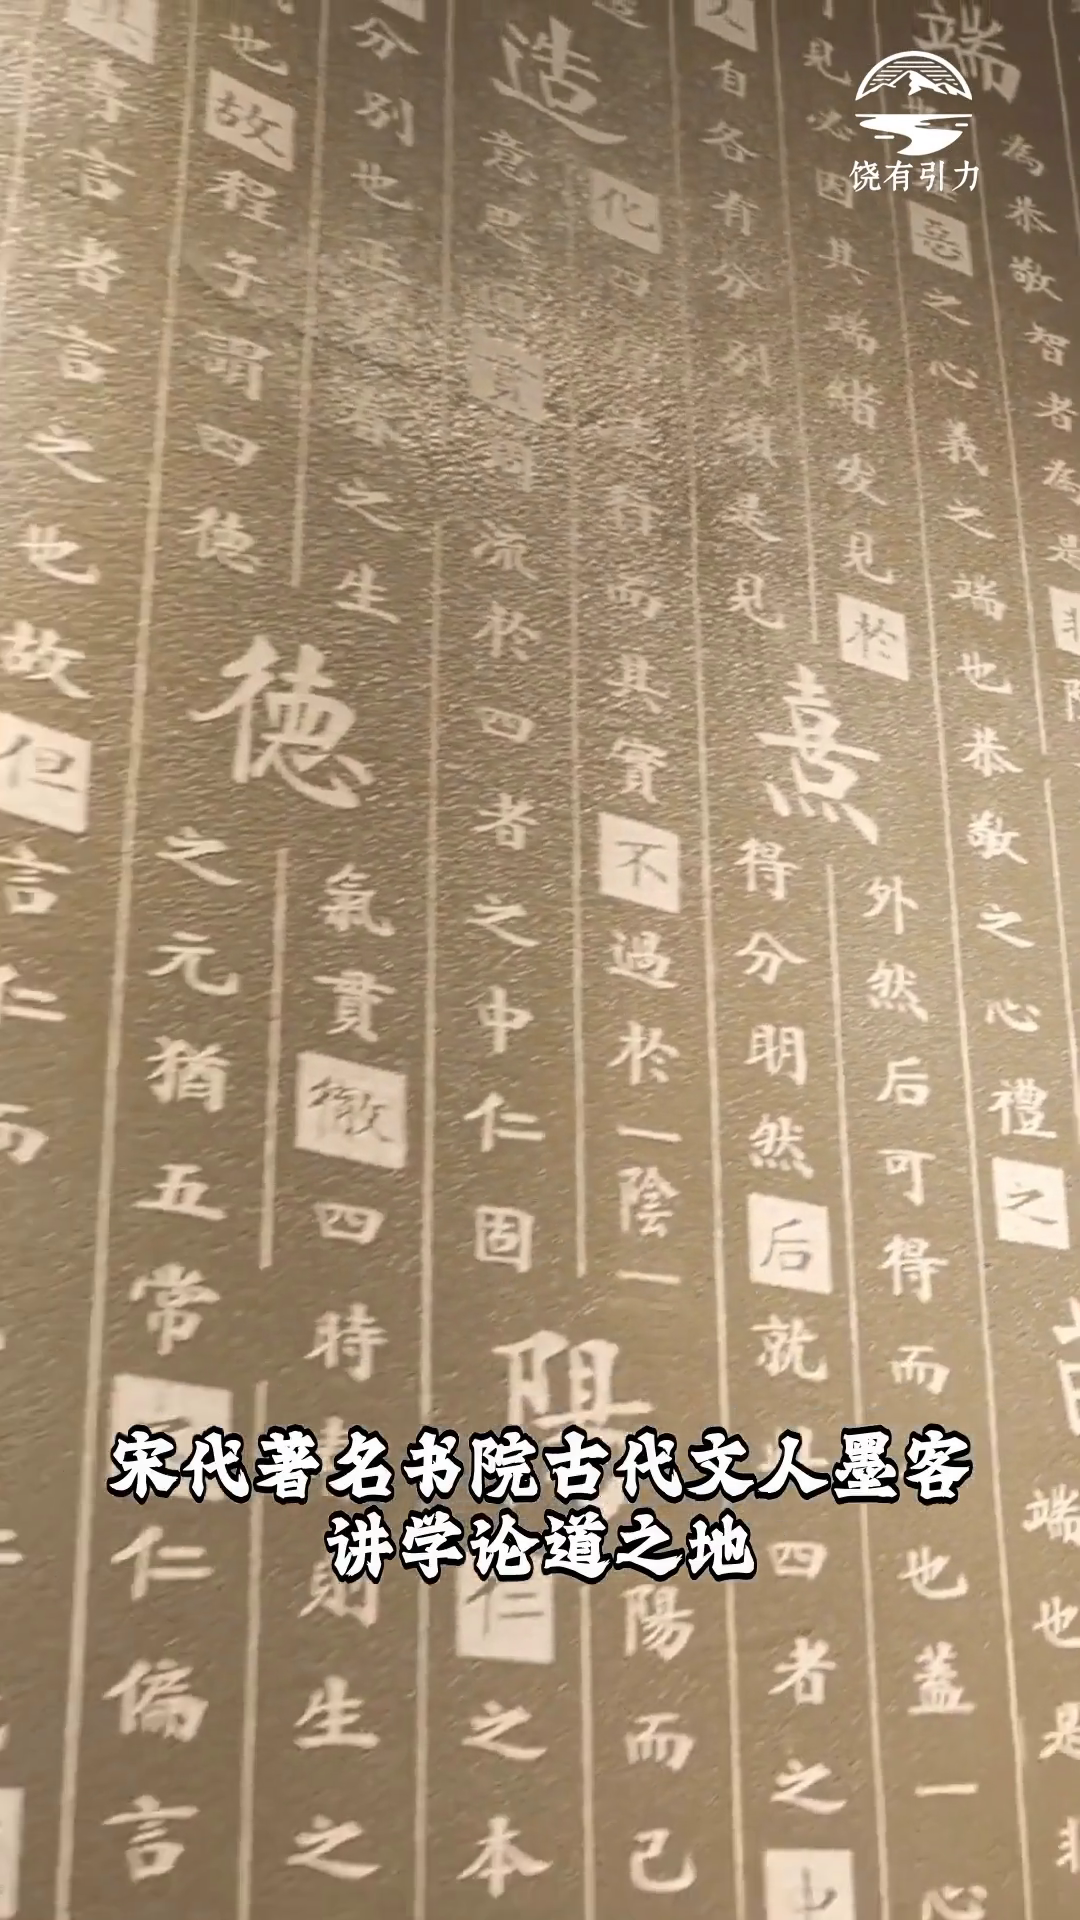 饶有引力
為恭敬智者為是
端
惡之心義之端也恭敬之心禮之
端也是非
見必因其端緒发見於外然后可得而
也蓋一心
自各有分别實是見熹得分明然后就
四者之
化四
而其實不過於一陰一
陽而已
造意思
流於四者之中仁固
仁之本
分别也正
春之生氣貫徹四時
則生之
也故程子謂四德之元猶五常
仁偏言
專言者言之也故但言仁而
宋代著名书院古代文人墨客
讲学论道之地